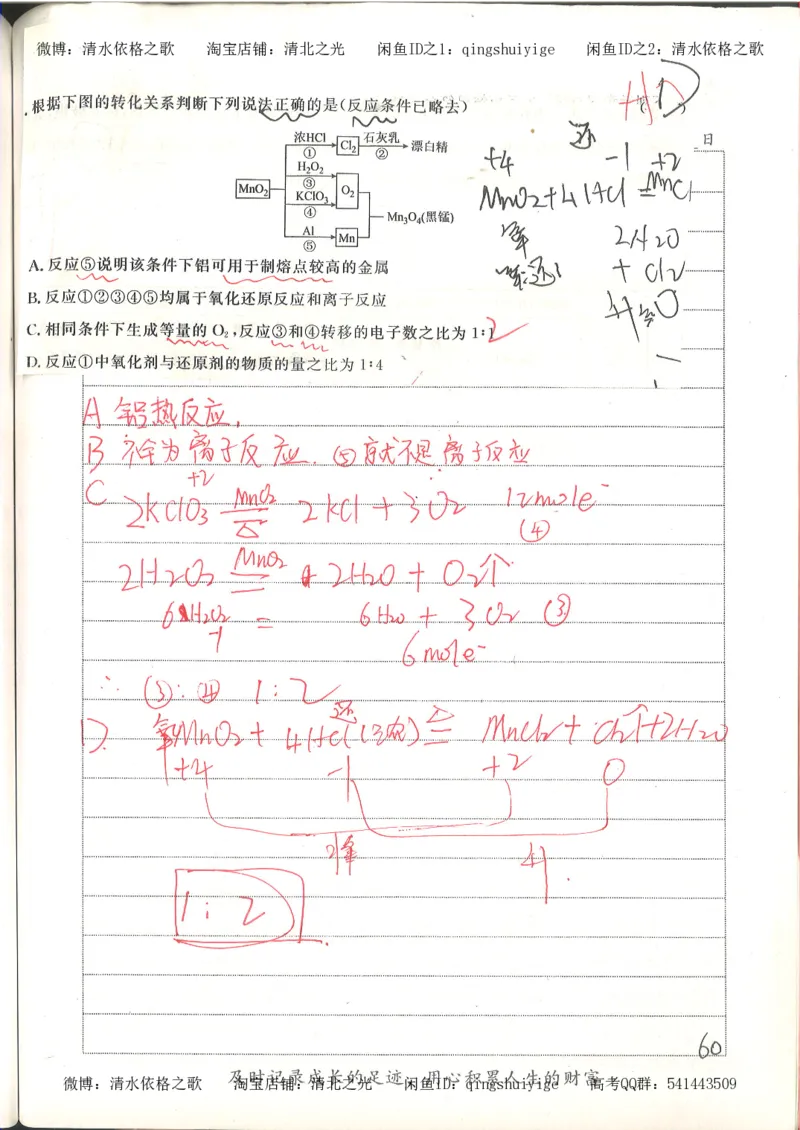 微博：清水依格之歌 淘宝店铺：清北之光 闲鱼ID之1：qingshuiyige 闲鱼ID之2：清水依格之歌
根据下图的转化关系判断下列说法正确的是(反应条件已略去)
日
浓HCl ① Cl₂ 石灰乳 ② 漂白精
H₂O₂ ③
MnO₂ KClO₃ ④ O₂
Mn₃O₄(黑锰)
Al ⑤ Mn
还
+4 -1 +2
MnO₂+4HCl = MnCl
2H2O
+ Cl2
A. 反应⑤说明该条件下铝可用于制熔点较高的金属
B. 反应①②③④⑤均属于氧化还原反应和离子反应
C. 相同条件下生成等量的 O₂,反应③和④转移的电子数之比为 1∶1
2
D. 反应①中氧化剂与还原剂的物质的量之比为 1∶4
A 铝热反应.
B 不全为离子反应. ⑤就不是离子反应
+2
C 2KClO3 MnO2 △ 2KCl + 3O2 12mole⁻
(4)
2H2O2 MnO2 = 2H2O + O2↑
6H2O2 = 6H2O + 3O2 (3)
-1
6mole⁻
∴ (3): (4) 1:2
还
D. 氧MnO2 + 4HCl(浓) △ = MnCl2 + Cl2↑+2H2O
+4 -1 +2 0
1:2
60
及时记录成长的足迹 用心积累人生的财富
微博：清水依格之歌 淘宝店铺：清北之光 闲鱼ID：qingshuiyige 高考QQ群：541443509